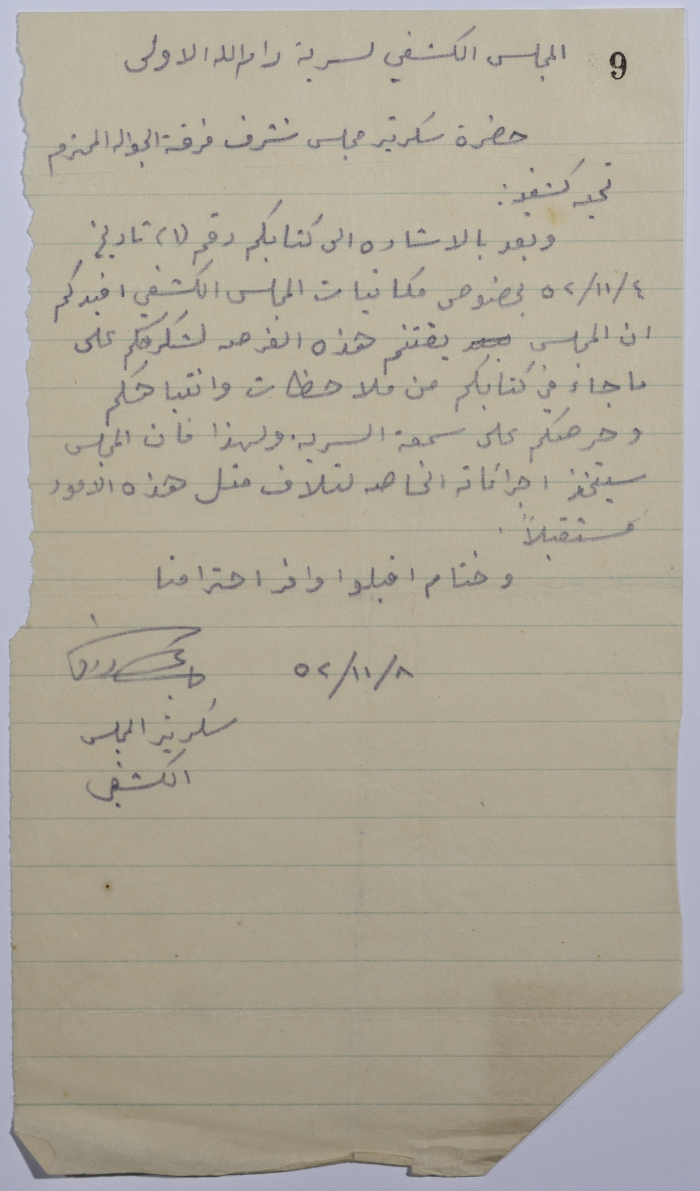 9
المجلس الكشفي لسرية رام الله الاولى
حضرة سكرتير مجلس شرف فرقة الجواله المحترم
تحيه كشفيه :
وبعد بالاشاره الى كتابكم رقم (١) تاريخ
٥٢/١١/٤ بخصوص مكاتبات المجلس الكشفي افيدكم
ان المجلس يغتنم هذه الفرصه لشكركم على
ما جاء في كتابكم من ملاحظات وانتباهكم
وحرصكم على سمعة السريه. ولهذا فان المجلس
سيتخذ اجراءاته الخاصه لتلاف مثل هذه الامور
مستقبلاً .
وختام اقبلوا وافر احترامنا
٥٢/١١/٨
سكرتير المجلس
الكشفي